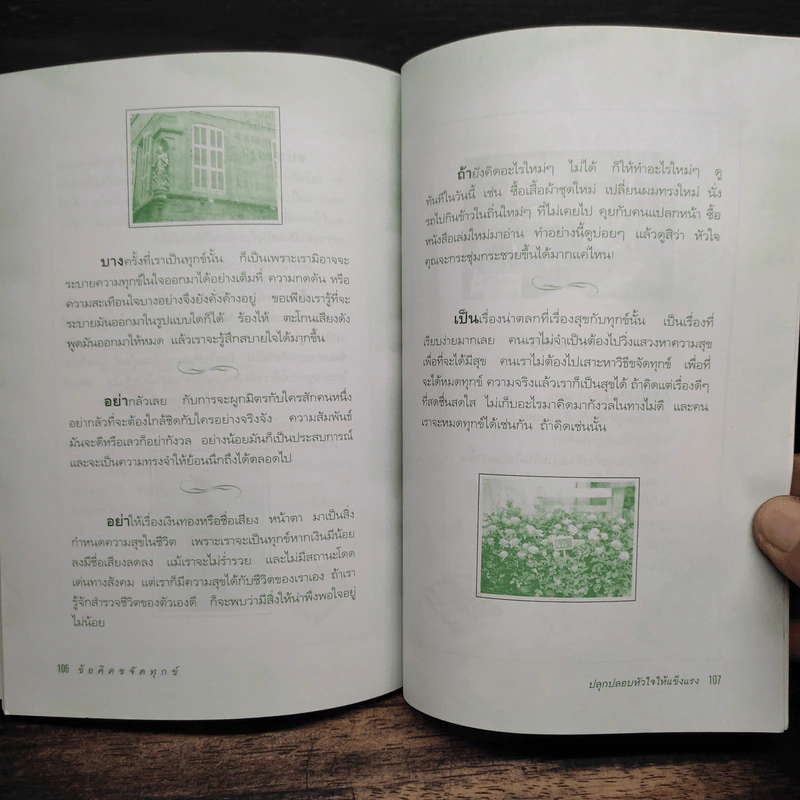 บางครั้งที่เราเป็นทุกข์นั้น ก็เป็นเพราะเรามิอาจจะ
ระบายความทุกข์ในใจออกมาได้อย่างเต็มที่ ความกดดัน หรือ
ความสะเทือนใจบางอย่างจึงยังคั่งค้างอยู่ ขอเพียงเรารู้ที่จะ
ระบายมันออกมาในรูปแบบใดก็ได้ ร้องไห้ ตะโกนเสียงดัง
พูดมันออกมาให้หมด แล้วเราจะรู้สึกสบายใจได้มากขึ้น
อย่ากลัวเลย กับการจะผูกมิตรกับใครสักคนหนึ่ง
อย่ากลัวที่จะต้องใกล้ชิดกับใครอย่างจริงจัง ความสัมพันธ์
มันจะดีหรือเลวก็อย่ากังวล อย่างน้อยมันก็เป็นประสบการณ์
และจะเป็นความทรงจำให้ย้อนนึกถึงได้ตลอดไป
อย่าให้เรื่องเงินทองหรือชื่อเสียง หน้าตา มาเป็นสิ่ง
กำหนดความสุขในชีวิต เพราะเราจะเป็นทุกข์หากเงินมีน้อย
ลงมีชื่อเสียงลดลง แม้เราจะไม่ร่ำรวย และไม่มีสถานะโดด
เด่นทางสังคม แต่เราก็มีความสุขได้กับชีวิตของเราเอง ถ้าเรา
รู้จักสำรวจชีวิตของตัวเองดี ก็จะพบว่ามีสิ่งให้น่าพึงพอใจอยู่
ไม่น้อย
106 ข้อคิดขจัดทุกข์
ถ้ายังคิดอะไรใหม่ๆ ไม่ได้ ก็ให้ทำอะไรใหม่ๆ ดู
ทันทีในวันนี้ เช่น ซื้อเสื้อผ้าชุดใหม่ เปลี่ยนผมทรงใหม่ นั่ง
รถไปกินข้าวในถิ่นใหม่ๆ ที่ไม่เคยไป คุยกับคนแปลกหน้า ซื้อ
หนังสือเล่มใหม่มาอ่าน ทำอย่างนี้ดูบ่อยๆ แล้วดูสิว่า หัวใจ
คุณจะกระชุ่มกระชวยขึ้นได้มากแค่ไหน!
เป็นเรื่องน่าตลกที่เรื่องสุขกับทุกข์นั้น เป็นเรื่องที่
เรียบง่ายมากเลย คนเราไม่จำเป็นต้องไปวิ่งแสวงหาความสุข
เพื่อที่จะได้มีสุข คนเราไม่ต้องไปเสาะหาวิธีขจัดทุกข์ เพื่อที่
จะได้หมดทุกข์ ความจริงแล้วเราก็เป็นสุขได้ ถ้าคิดแต่เรื่องดีๆ
ที่สดชื่นสดใส ไม่เก็บอะไรมาคิดมากังวลในทางไม่ดี และคน
เราจะหมดทุกข์ได้เช่นกัน ถ้าคิดเช่นนั้น
ปลุกปลอบหัวใจให้แข็งแรง 107